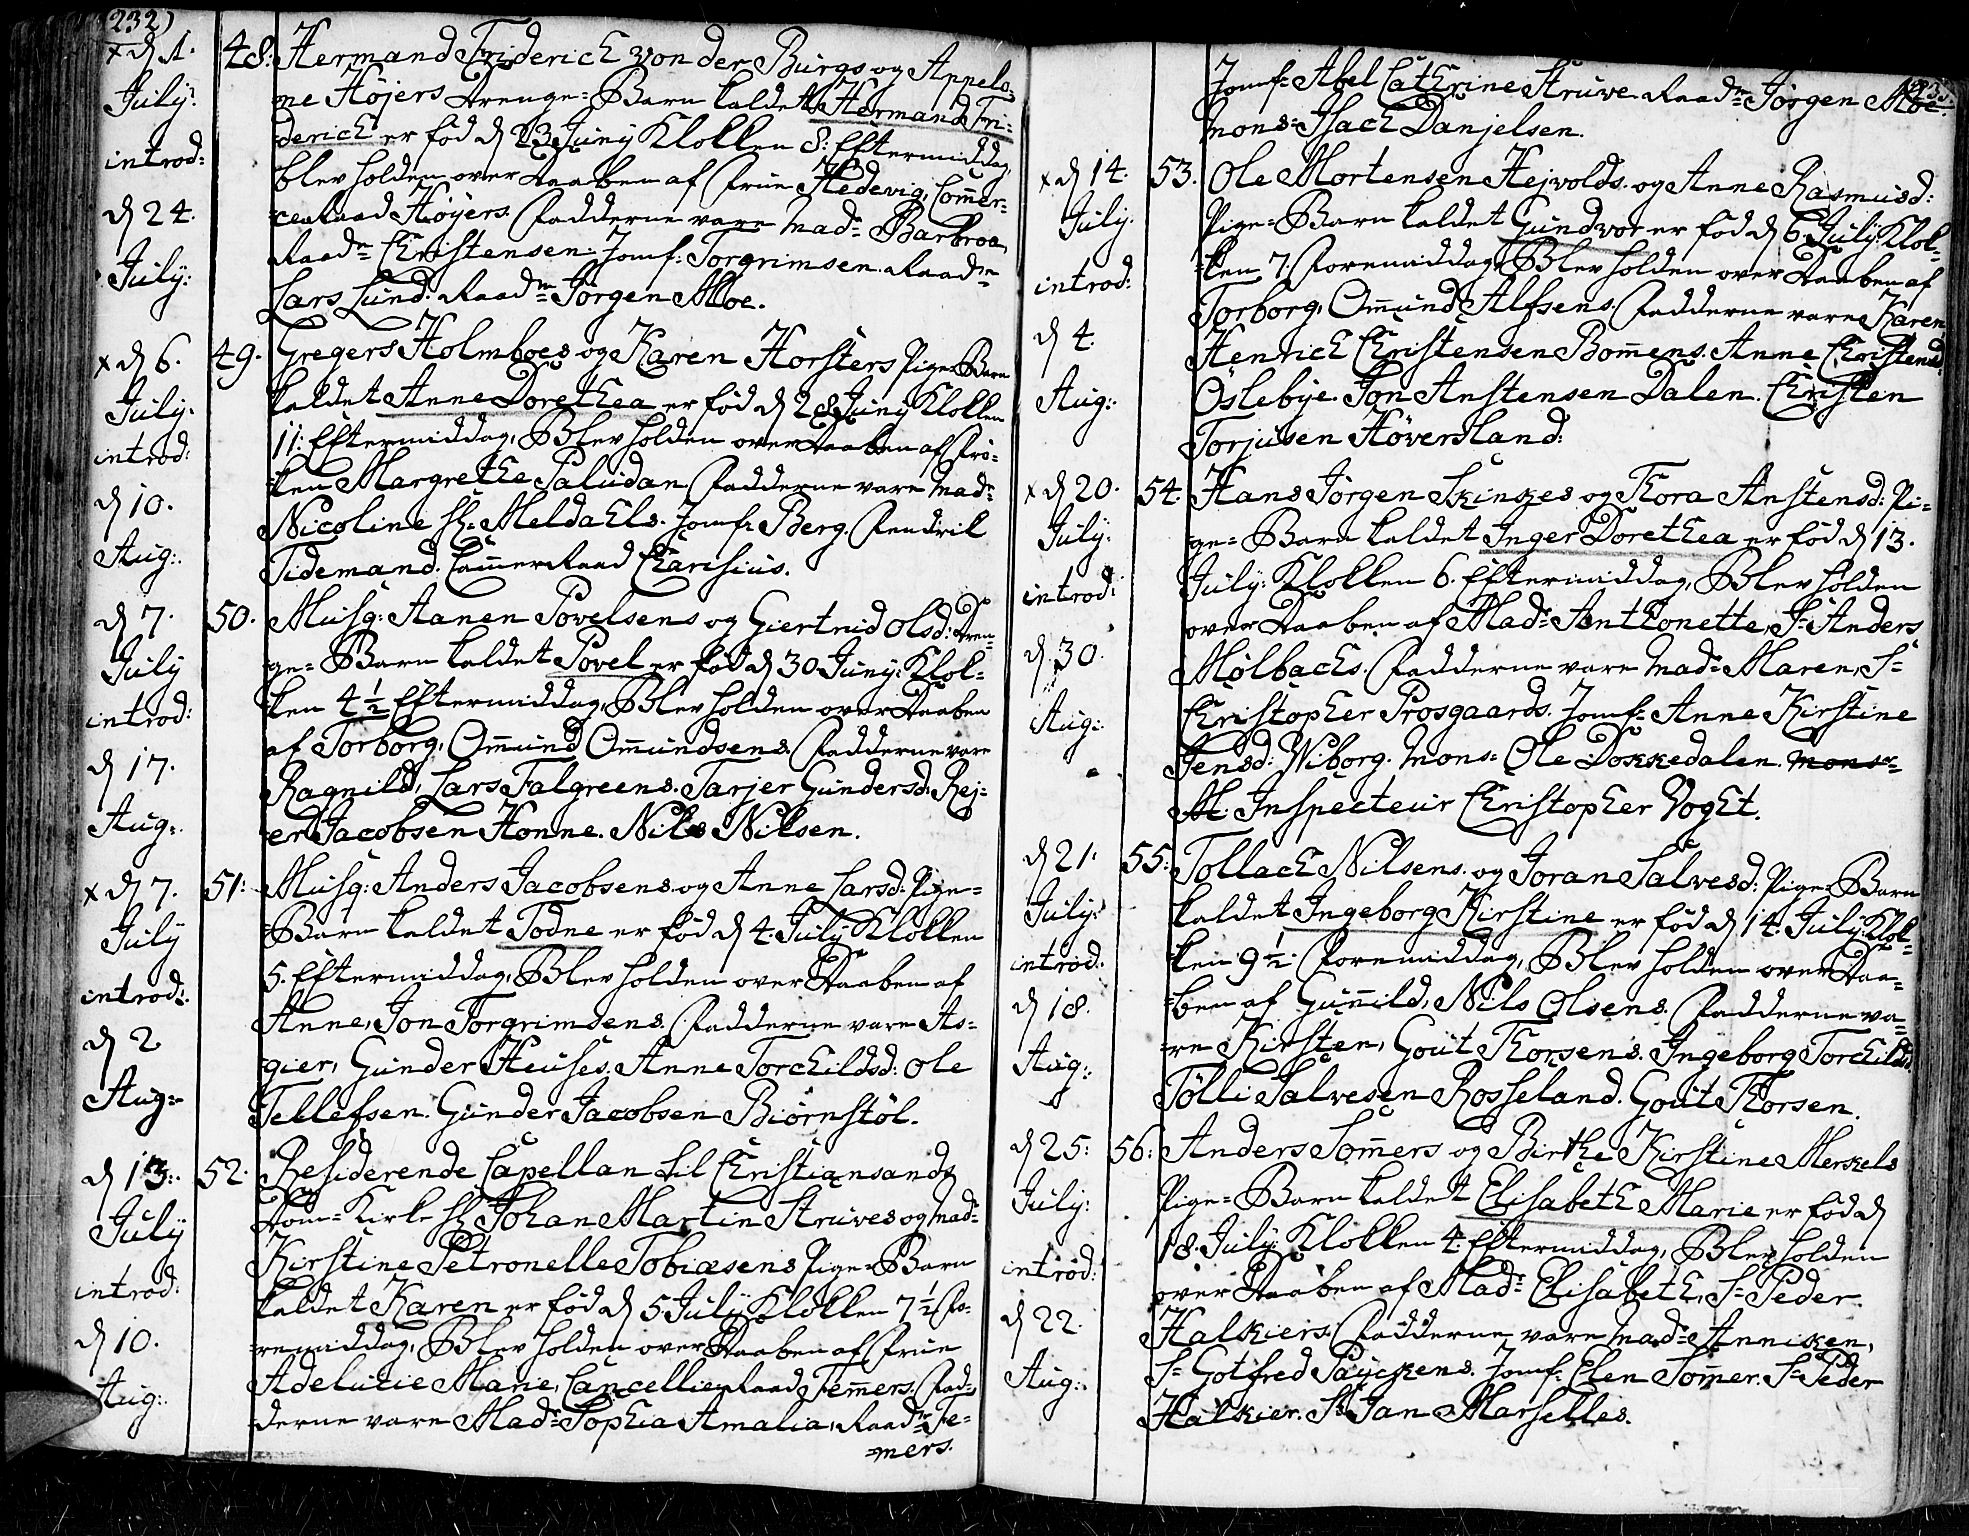 232)
x d 1.
July:
introd:
d 24.
July:
48. Hermand Friderich von der Burgs og Appelo=
ne Höjers Drenge=Barn kaldet Hermand Fri=
derich er föd d 23 Juny Klokken 8. Eftermiddag,
blev holden over Daaben af Frue Hedevig, Com̄er=
ceRaad Höyers. Fadderne vare Mad: Barbroe,
Raadm Christensen. Jomf: Torgrimsen. Raadm
Lars Lund. Raadm Jörgen Moe.
x d 6.
July.
introd:
d 10.
Aug:.
49. Gregers Holmboes og Karen Horsters Pige=Barn
kaldet Anne Dorethea er föd d 28 Juny Klokken
11: Eftermiddag, Blev holden over Daaben af Frö=
ken Margrethe Paludan Fadderne vare Mad:
Nicoline Hr: Meldahls. Jomf: Berg. Fendrik
Tidemand. Cam̄erRaad Charisius.
d 7.
July
introd:
d 17.
Aug:.
50. Musq: Aanen Povelsens og Giertrud Olsd: Dren=
ge=Barn kaldet Povel er föd d 30 Juny: Klok=
ken 4½ Eftermiddag, Blev holden over Daaben
af Torborg, Om̄und Om̄undsens. Fadderne vare
Ragnild, Lars Falgreens. Tarjer Gundersd: Rej=
er Jacobsen Honne. Nils Nilsen.
x d 7.
July
introd:.
d 2
Aug:
51: Musq: Anders Jacobsens og Anne Larsd: Pige=
Barn kaldet Todne er föd d 4. July Klokken
5. Eftermiddag, Blev holden over Daaben af
Anne, Jon Torgrimsens. Fadderne vare As=
gier, Gunder Heuses. Anne Torchildsd: Ole
Tellefsen. Gunder Jacobsen Biörnstöl.
d 13:.
July
introd:
d 10.
Aug:.
52. Residerende Capellan til Christiansands
Dom=Kirke Hr Johan Martin Struves og Mad:
Kirstine Petronelle Tobiæsens Pige=Barn
kaldet Karen er föd d 5 July Klokken 7½ Fo=
remiddag, Blev holden over Daaben af Frue
Adelucie Marie, CancellieRaad Tem̄ers. Fad=
derne vare Mad: Sophia Amalia, Raadm Te=
=mers.
233.
Jomf: Abel Cathrine Struve. Raadm Jörgen Moe.
Mons: Isach Danjelsen.
x d 14.
July.
introd:
d 4.
Aug:.
53. Ole Mortensen Hejvolds og Anne Rasmusd:
Pige=Barn kaldet Gundvor er föd d 6 July: Klok=
ken 7. Foremiddag, Blev holden over Daaben af
Torborg, Om̄und Alfsens. Fadderne vare Karen
Henrich Christensen Bom̄ens. Anne Christensd:
Öslebye. Jon Anstensen Dalen. Christen
Torjusen Höversland:
x d 20.
July:
introd:
d 30.
Aug:.
54. Hans Jörgen Skinkes og Thora Anstensd: Pi=
ge=Barn kaldet Inger Dorethea er föd d 13.
July: Klokken 6. Eftermiddag, Blev holden
over Daaben af Mad: Anthonette, Sr Anders
Mölbachs. Fadderne vare Mad: Maren, Sr
Christopher Prosgaards. Jomf: Anne Kirstine
Jensd: Wiborg. Mons: Ole Dokkedalen. Monsr
M. Inspecteur Christopher Voght.
d 21.
July:
introd:
d 18.
Aug:.
55: Tollach Nilsens. og Joran Salvesd: Pige=Barn
kaldet Ingeborg Kirstine er föd d 14. July: Klok=
ken 9½. Foremiddag, Blev holden over Daa=
ben af Gun̄ild, Nils Olsens. Fadderne va=
re Kirsten, Gout Thorsens. Ingeborg Torchildsd:
Tölli Salvesen Rosseland. Gout Thorsen.
d 25:
July:
introd:
d 22.
Aug:.
56: Anders Som̄ers og Birthe Kirstine Merkels
Pige=Barn kaldet Elisabeth Marie er föd d
18. July: Klokken 4. Eftermiddag, Blev holden
over Daaben af Mad: Elisabeth, Sr Peder
Halkiers. Fadderne vare Mad: Anniken,
Sr Gotfred Paÿckens. Jomf: Elen Som̄er. Sr Peder
Halkier. Sr Jan Marselles.